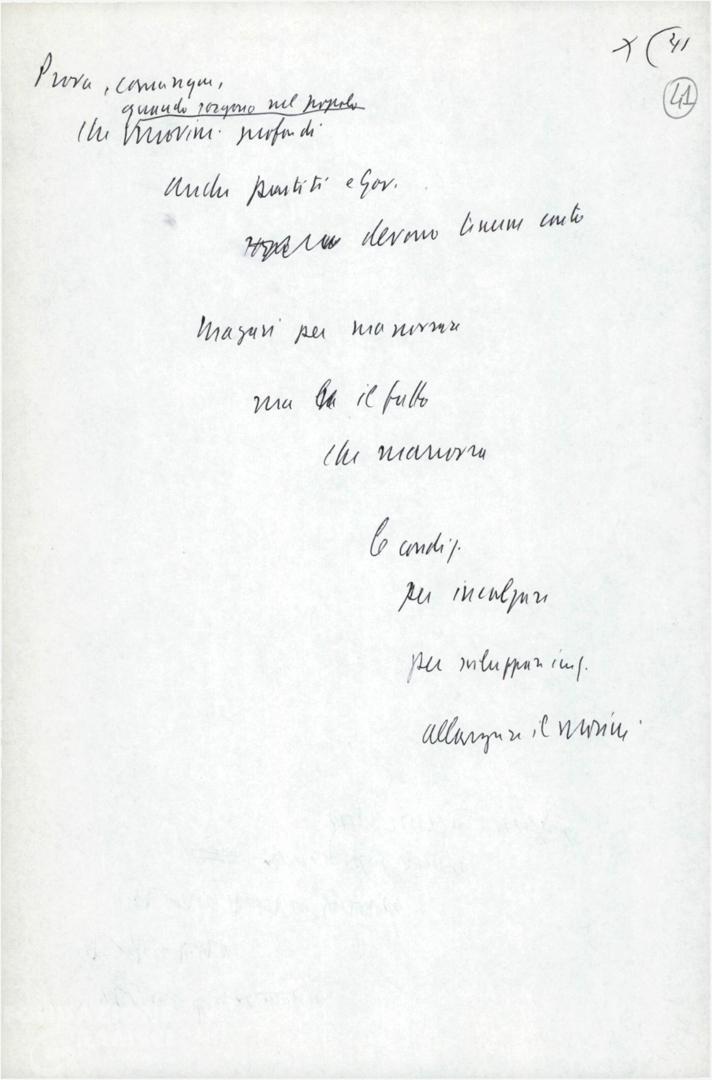 X (41
41
Prova, comunque,
quando sorgono nel popolo
che movim. profondi
anche partiti e Gov.
devono tenerne conto
Magari per manovrare
ma il fatto
che manovra
è condiz.
per incalzare
per sviluppare iniz.
allargare il movim.